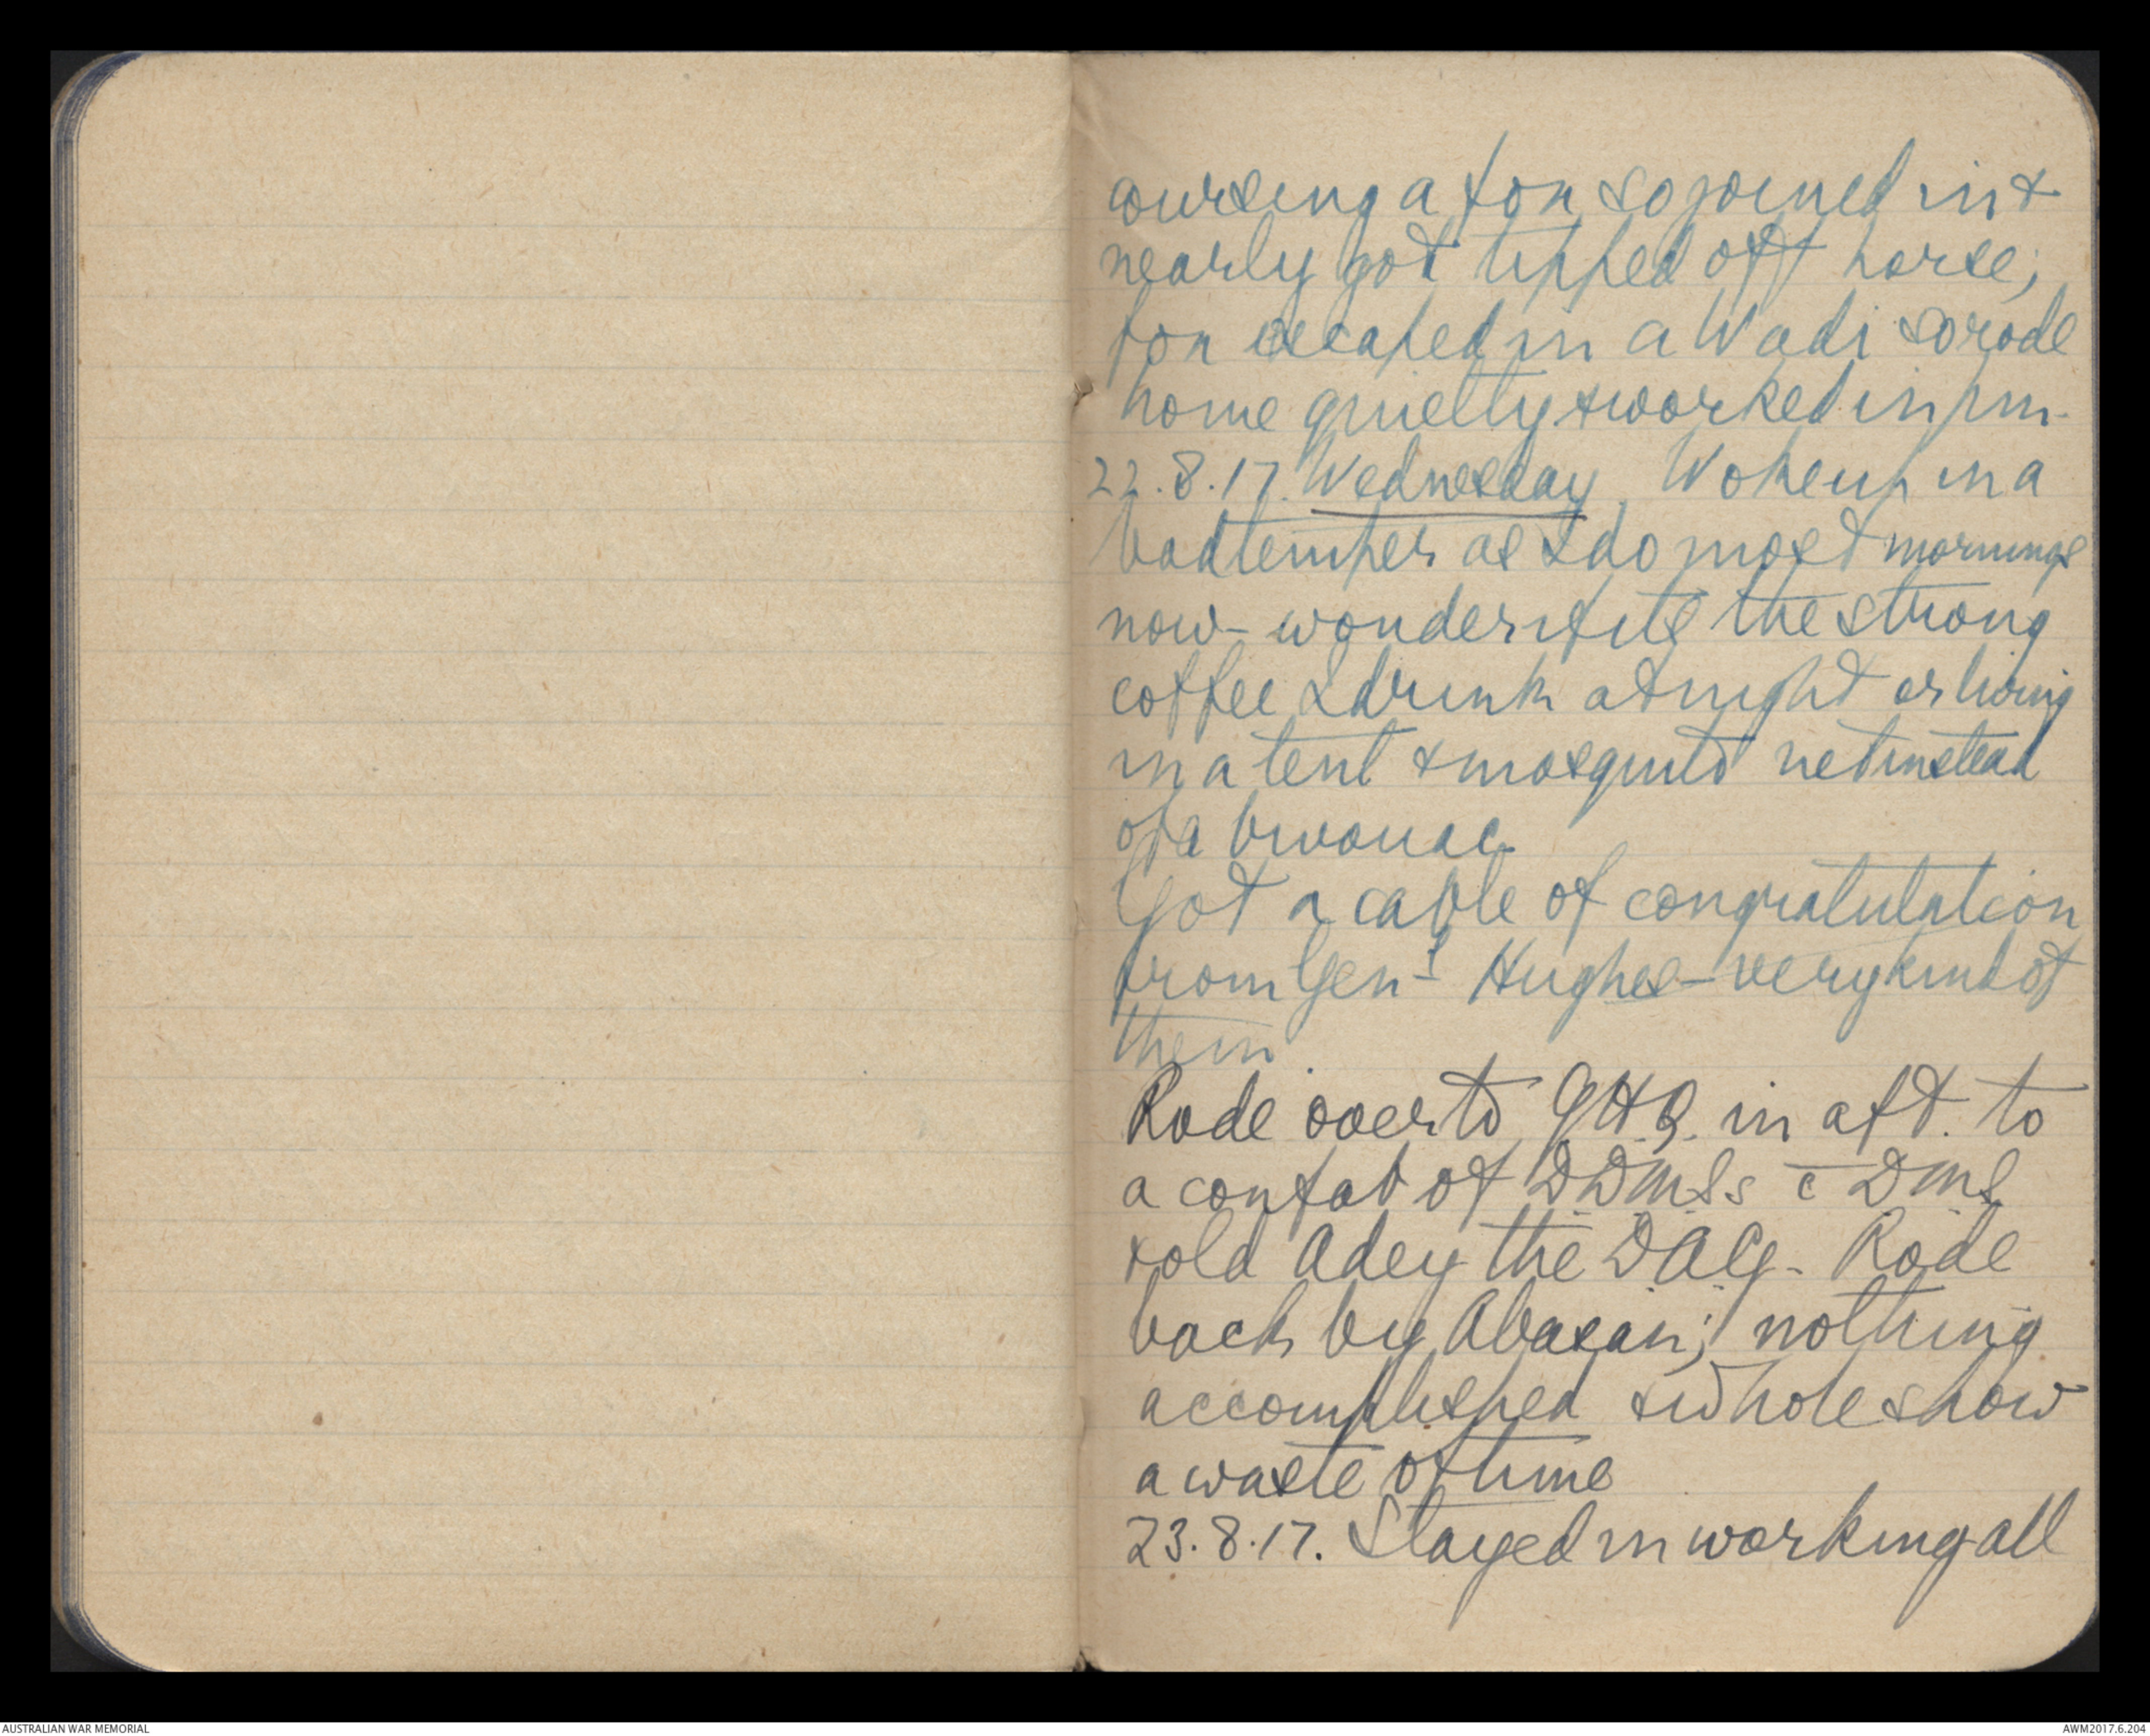 coursing a fox so joined in &
nearly got tipped off horse;
fox escaped in a Wadi so rode
home quietly & worked in pm.
22.8.17. Wednesday. Woke up in a
bad temper as I do most mornings
now - wonder if its the strong
coffee I drink at night or living
in a tent & mosquito net instead
of a bivouac.
Got a cable of congratulation
from Genl Hughes - very kind of
them.
Rode over to GHQ. in aft. to
a confab of DDMSs c̄ DMS
& old Adey the DAG - Rode
back by Abasan; nothing
accomplished & whole show
a waste of time
23.8.17. Stayed in working all
AUSTRALIAN WAR MEMORIAL
AWM2017.6.204